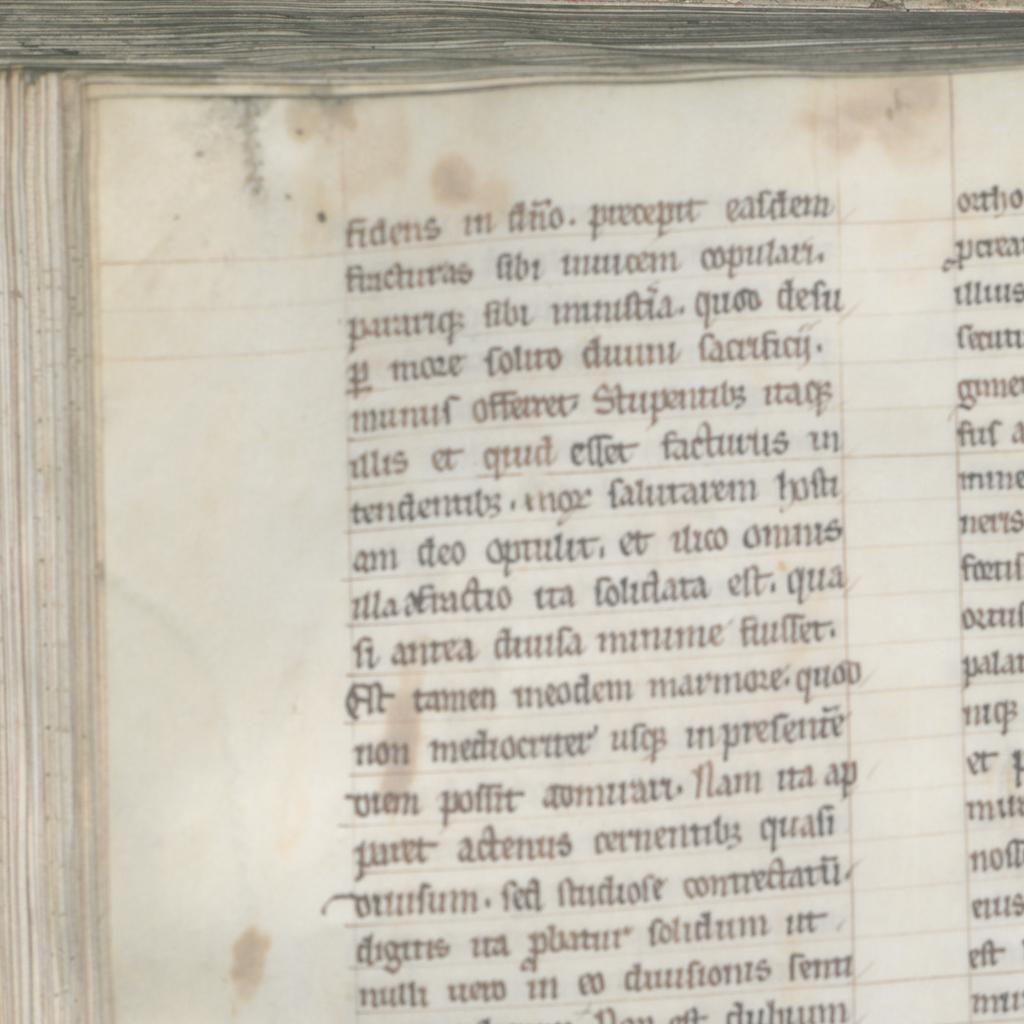 fidens in dño. precepit easdem
fracturas sibi inuicem copulari.
parariq; sibi ministĩa. quod desu
ꝑ more solito diuini sacrificij.
munus offerret. Stupentib; itaq;
illis et quid esset facturus in
tendentib;. mox salutarem hosti
am deo optulit. et ilico omnis
illa cōfractio ita solidata est. qua
si antea diuisa minime fuisset.
Est tamen in eodem marmore. quod
non mediocriter usq; in presentē
diem possit admirari. Nam ita ap
paret actenus cernentib; quasi
diuisum. sed studiose contrectatū.
digitis ita ꝓbatur solidum ut
nulli uero in eo diuisionis senti
Non est dubium
ortho
pereat
illius
secuti
fus a
mine
neris
fortis
ortus
palam
niq;
et p
noss
eius
est